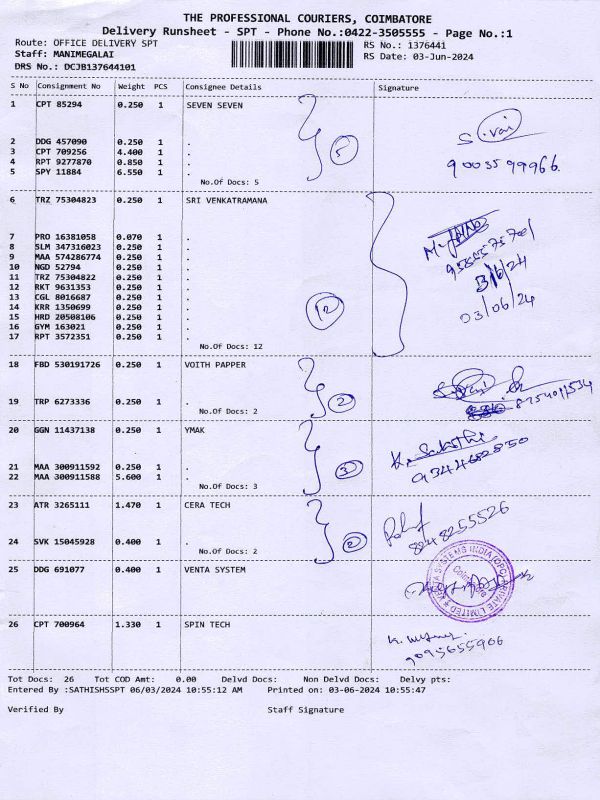 THE PROFESSIONAL COURIERS, COIMBATORE
Delivery Runsheet - SPT - Phone No.:0422-3505555 - Page No.:1
Route: OFFICE DELIVERY SPT RS No.: 1376441
Staff: MANIMEGALAI RS Date: 03-Jun-2024
DRS No.: DCJB137644101
S No Consignment No Weight PCS Consignee Details Signature
1 CPT 85294 0.250 1 SEVEN SEVEN
2 DDG 457090 0.250 1 .
3 CPT 709256 4.400 1 .
4 RPT 9277870 0.850 1 .
5 SPY 11884 6.550 1 .
5
9003599966.
No.Of Docs: 5
6 TRZ 75304823 0.250 1 SRI VENKATRAMANA
7 PRO 16381058 0.070 1 .
8 SLM 347316023 0.250 1 .
9 MAA 574286774 0.250 1 .
10 NGD 52794 0.250 1 .
11 TRZ 75304822 0.250 1 .
12 RKT 9631353 0.250 1 .
13 CGL 8016687 0.250 1 .
14 KRR 1350699 0.250 1 .
15 HRD 20508106 0.250 1 .
16 GYM 163021 0.250 1 .
17 RPT 3572351 0.250 1 .
12
03/06/24
No.Of Docs: 12
18 FBD 530191726 0.250 1 VOITH PAPPER
19 TRP 6273336 0.250 1 .
2
No.Of Docs: 2
20 GGN 11437138 0.250 1 YMAK
K. Sakthi
21 MAA 300911592 0.250 1 .
22 MAA 300911588 5.600 1 .
3
No.Of Docs: 3
23 ATR 3265111 1.470 1 CERA TECH
8248255526
24 SVK 15045928 0.400 1 .
2
No.Of Docs: 2
25 DDG 691077 0.400 1 VENTA SYSTEM
VENTA SYSTEMS INDIA (OPC) PRIVATE LIMITED
26 CPT 700964 1.330 1 SPIN TECH
9095655906
Tot Docs: 26 Tot COD Amt: 0.00 Delvd Docs: Non Delvd Docs: Delvy pts:
Entered By :SATHISHSSPT 06/03/2024 10:55:12 AM Printed on: 03-06-2024 10:55:47
Verified By Staff Signature